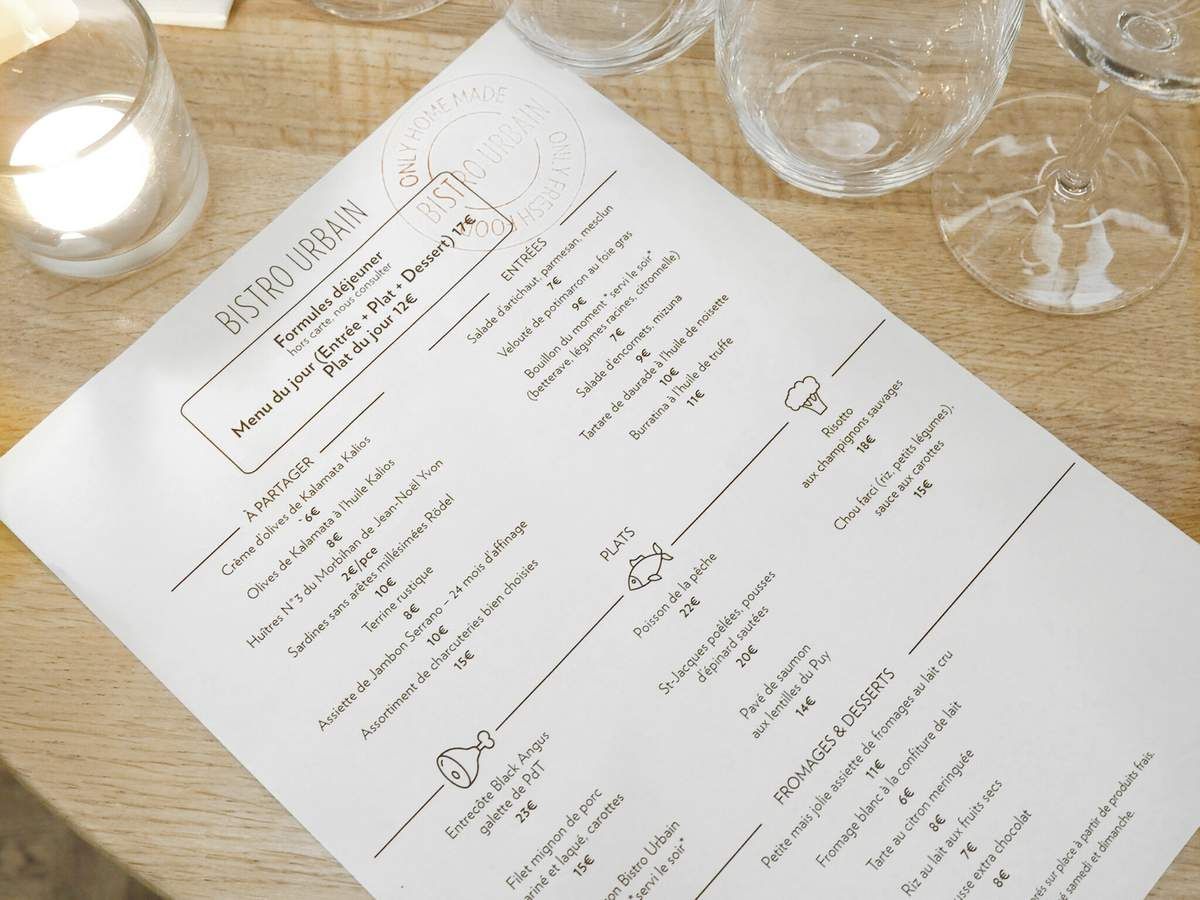 ONLY HOME MADE
BISTRO URBAIN
ONLY FRESH FOOD
BISTRO URBAIN
Formules déjeuner
hors carte, nous consulter
Menu du jour (Entrée + Plat + Dessert) 17€
Plat du jour 12€
À PARTAGER
Crème d'olives de Kalamata Kalios
6€
Olives de Kalamata à l'huile Kalios
8€
Huîtres N°3 du Morbihan de Jean-Noël Yvon
2€/pce
Sardines sans arêtes millésimées Rödel
10€
Terrine rustique
8€
Assiette de Jambon Serrano – 24 mois d'affinage
10€
Assortiment de charcuteries bien choisies
15€
ENTRÉES
Salade d'artichaut, parmesan, mesclun
7€
Velouté de potimarron au foie gras
9€
Bouillon du moment* servi le soir*
(betterave, légumes racines, citronnelle)
7€
Salade d'encornets, mizuna
9€
Tartare de daurade à l'huile de noisette
10€
Burratina à l'huile de truffe
11€
PLATS
Entrecôte Black Angus
galette de PdT
23€
Filet mignon de porc
ariné et laqué, carottes
15€
on Bistro Urbain
*servi le soir*
Poisson de la pêche
22€
St-Jacques poêlées, pousses
d'épinard sautées
20€
Pavé de saumon
aux lentilles du Puy
14€
Risotto
aux champignons sauvages
18€
Chou farci (riz, petits légumes),
sauce aux carottes
15€
FROMAGES & DESSERTS
Petite mais jolie assiette de fromages au lait cru
11€
Fromage blanc à la confiture de lait
6€
Tarte au citron meringuée
8€
Riz au lait aux fruits secs
7€
usse extra chocolat
8€
rés sur place à partir de produits frais.
é samedi et dimanche.